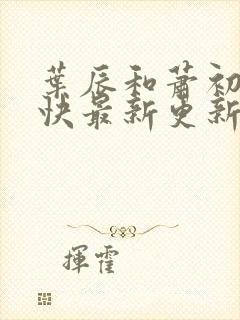 葉辰和蕭初
快最新更新
揮霍